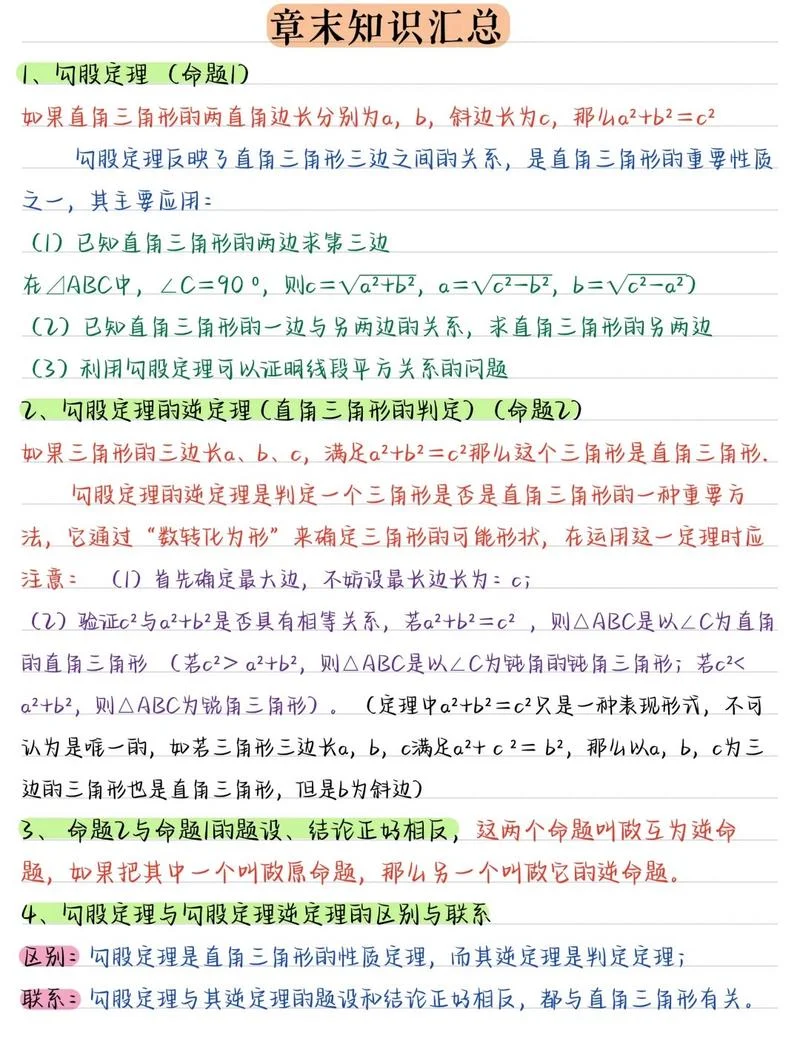 章末知识汇总
1、勾股定理 （命题1）
如果直角三角形的两直角边长分别为a，b，斜边长为c，那么a²+b²=c²
勾股定理反映了直角三角形三边之间的关系，是直角三角形的重要性质
之一，其主要应用：
（1）已知直角三角形的两边求第三边
在⊿ABC中，∠C=90°，则c=√a²+b²，a=√c²-b²，b=√c²-a²）
（2）已知直角三角形的一边与另两边的关系，求直角三角形的另两边
（3）利用勾股定理可以证明线段平方关系的问题
2、勾股定理的逆定理（直角三角形的判定）（命题2）
如果三角形的三边长a、b、c，满足a²+b²=c²那么这个三角形是直角三角形.
勾股定理的逆定理是判定一个三角形是否是直角三角形的一种重要方
法，它通过“数转化为形”来确定三角形的可能形状，在运用这一定理时应
注意： （1）首先确定最大边，不妨设最长边长为：c；
（2）验证c²与a²+b²是否具有相等关系，若a²+b²=c² ，则△ABC是以∠C为直角
的直角三角形 （若c²> a²+b²，则△ABC是以∠C为钝角的钝角三角形；若c²<
a²+b²，则△ABC为锐角三角形）。（定理中a²+b²=c²只是一种表现形式，不可
认为是唯一的，如若三角形三边长a，b，c满足a²+ c ²= b²，那么以a，b，c为三
边的三角形也是直角三角形，但是b为斜边）
3、 命题2与命题1的题设、结论正好相反，这两个命题叫做互为逆命
题，如果把其中一个叫做原命题，那么另一个叫做它的逆命题。
4、勾股定理与勾股定理逆定理的区别与联系
区别：勾股定理是直角三角形的性质定理，而其逆定理是判定定理；
联系：勾股定理与其逆定理的题设和结论正好相反，都与直角三角形有关。